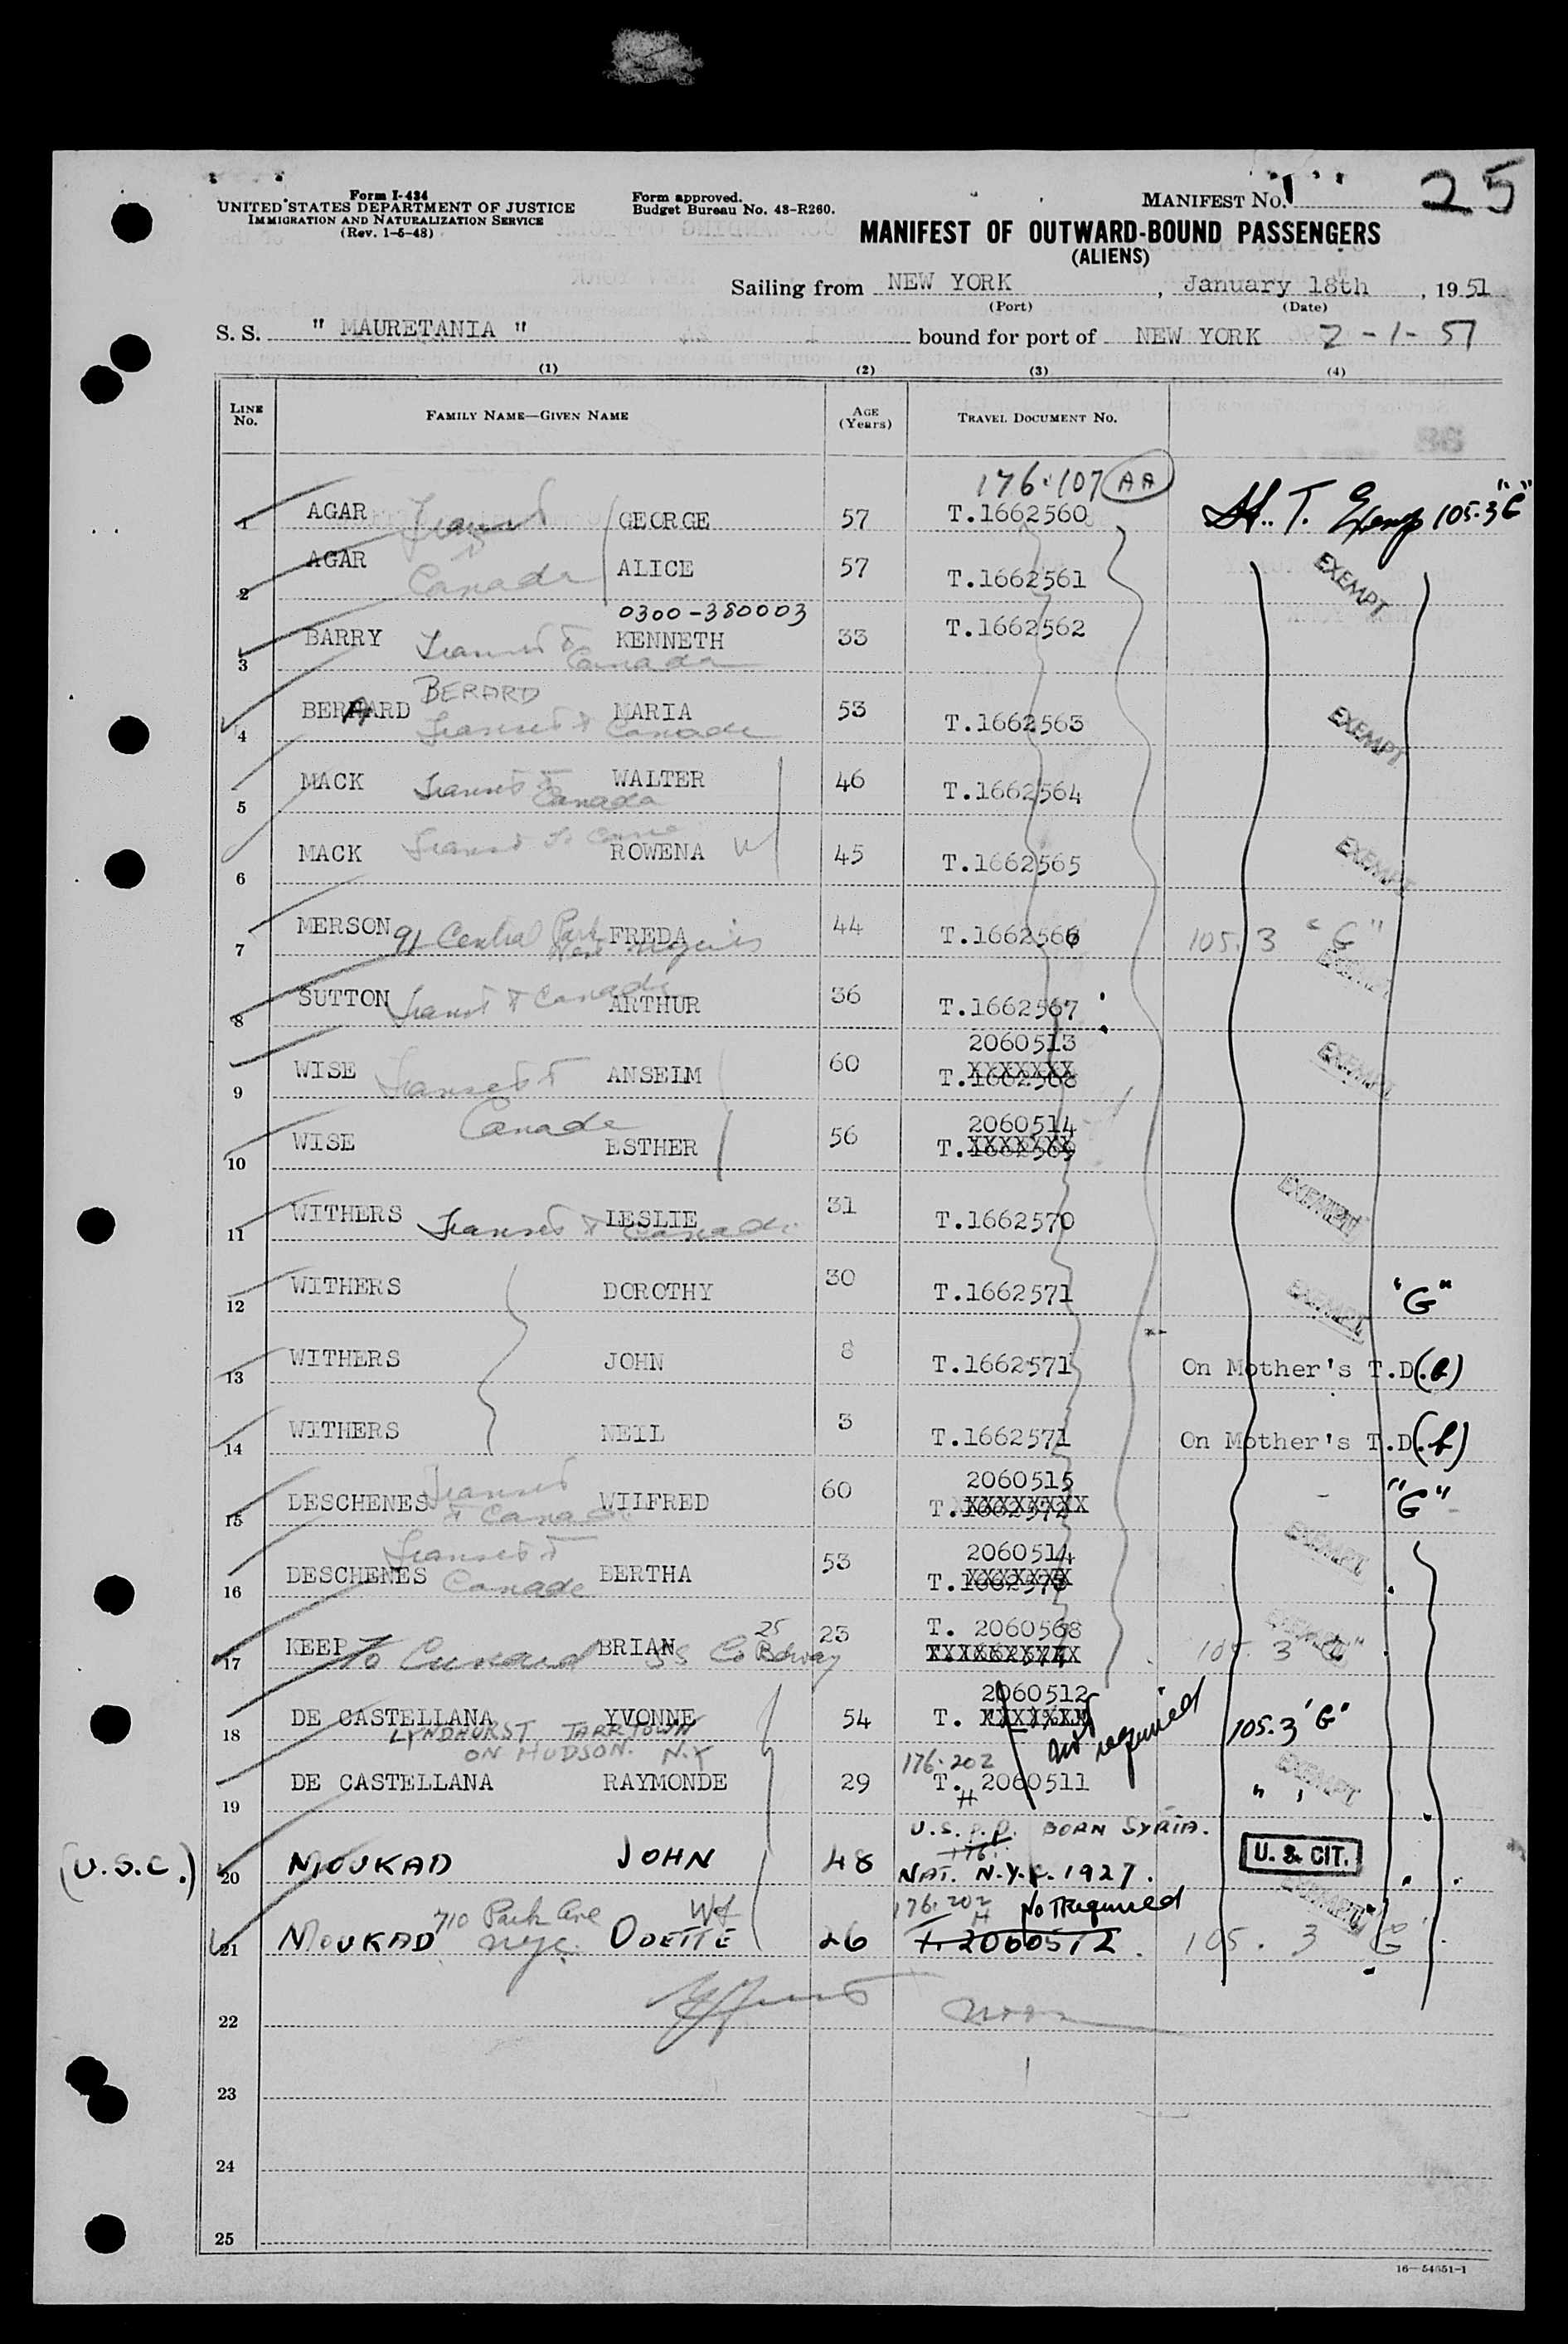 25
Form I-434
UNITED STATES DEPARTMENT OF JUSTICE
IMMIGRATION AND NATURALIZATION SERVICE
(Rev. 1-5-48)
Form approved.
Budget Bureau No. 43-R260.
MANIFEST NO.
MANIFEST OF OUTWARD-BOUND PASSENGERS
(ALIENS)
Sailing from NEW YORK, January 18th, 1951
(Port) (Date)
S. S. " MAURETANIA " bound for port of NEW YORK 2-1-51
(1) (2) (3) (4)
LINE No. FAMILY NAME—GIVEN NAME AGE (Years) TRAVEL DOCUMENT NO.
176.107 AA
1 AGAR Transit GEORGE 57 T.1662560 105.3 "G"
2 AGAR Canada ALICE 57 T.1662561 EXEMPT
0300-380003
3 BARRY Transit to Canada KENNETH 33 T.1662562
BERARD
4 BERNARD Transit to Canada MARIA 53 T.1662563 EXEMPT
5 MACK Transit to Canada WALTER 46 T.1662564
6 MACK Transit to ROWENA W 45 T.1662565 EXEMPT
7 MERSON 91 Central Park West FREDA 44 T.1662566 105.3 "G" EXEMPT
8 SUTTON Transit to Canada ARTHUR 36 T.1662567
2060513
9 WISE Transit to ANSELM 60 T.1662568 EXEMPT
Canada 2060514
10 WISE ESTHER 56 T.1662569
11 WITHERS Transit to Canada LESLIE 31 T.1662570 EXEMPT
12 WITHERS DOROTHY 30 T.1662571 EXEMPT "G"
13 WITHERS JOHN 8 T.1662571 On Mother's T.D.
14 WITHERS NEIL 3 T.1662571 On Mother's T.D.
2060515
15 DESCHENES Transit to Canada WILFRED 60 T.1662572 "G"
Transit to 2060514
16 DESCHENES Canada BERTHA 53 T.1662573 EXEMPT
25 T. 2060568
17 KEEP To Cunard BRIAN SS Co Bdway 23 105.3 "G" EXEMPT
2060512
18 DE CASTELLANA YVONNE 54 T. XXXXXXX not required 105.3 "G"
LYNDHURST TARRTOWN
ON HUDSON. N.Y
176.202
19 DE CASTELLANA RAYMONDE 29 T. 2060511 " " EXEMPT
U.S.P.P. BORN SYRIA.
(U.S.C.) 20 MOUKAD JOHN 48 NAT. N.Y.C. 1927. U. S. CIT.
176.202 Not Required EXEMPT
21 MOUKAD 710 Park Ave NYC. Wf ODETTE 26 T. 2060512. 105.3 G
22
23
24
25
16—54651-1